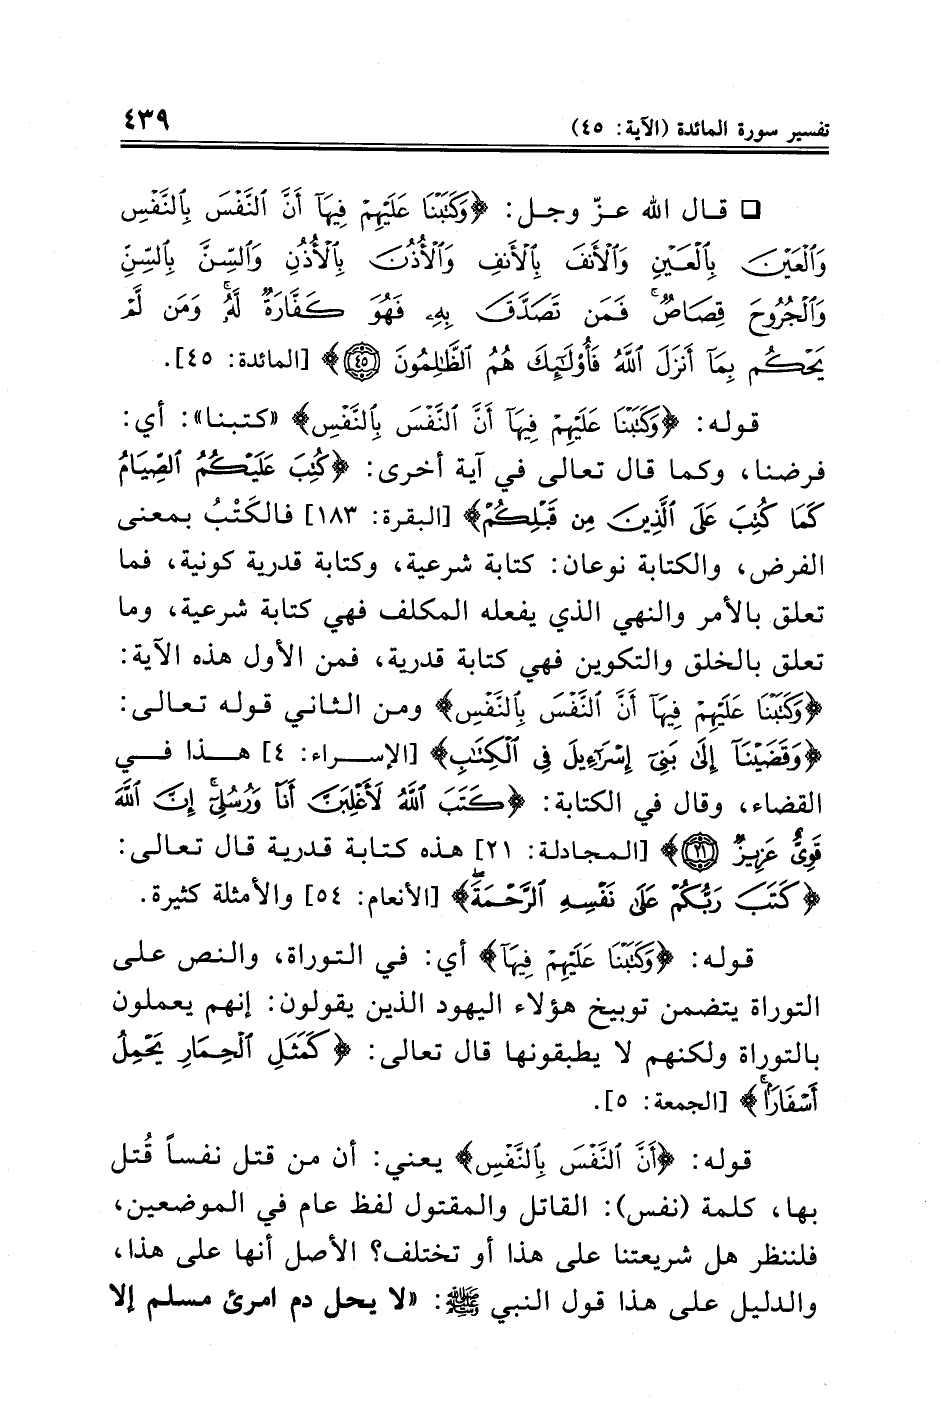 تفسير سورة المائدة (الآية: ٤٥) ٤٣٩
❑ قال الله عزّ وجل: ﴿وَكَتَبْنَا عَلَيْهِمْ فِيهَآ أَنَّ ٱلنَّفْسَ بِٱلنَّفْسِ
وَٱلْعَيْنَ بِٱلْعَيْنِ وَٱلْأَنفَ بِٱلْأَنفِ وَٱلْأُذُنَ بِٱلْأُذُنِ وَٱلسِّنَّ بِٱلسِّنِّ
وَٱلْجُرُوحَ قِصَاصٌ ۚ فَمَن تَصَدَّقَ بِهِۦ فَهُوَ كَفَّارَةٌ لَّهُۥ ۚ وَمَن لَّمْ
يَحْكُم بِمَآ أَنزَلَ ٱللَّهُ فَأُو۟لَـٰٓئِكَ هُمُ ٱلظَّـٰلِمُونَ ٤٥﴾ [المائدة: ٤٥].
قوله: ﴿وَكَتَبْنَا عَلَيْهِمْ فِيهَآ أَنَّ ٱلنَّفْسَ بِٱلنَّفْسِ﴾ «كتبنا»: أي:
فرضنا، وكما قال تعالى في آية أخرى: ﴿كُتِبَ عَلَيْكُمُ ٱلصِّيَامُ
كَمَا كُتِبَ عَلَى ٱلَّذِينَ مِن قَبْلِكُمْ﴾ [البقرة: ١٨٣] فالكَتْبُ بمعنى
الفرض، والكتابة نوعان: كتابة شرعية، وكتابة قدرية كونية، فما
تعلق بالأمر والنهي الذي يفعله المكلف فهي كتابة شرعية، وما
تعلق بالخلق والتكوين فهي كتابة قدرية، فمن الأول هذه الآية:
﴿وَكَتَبْنَا عَلَيْهِمْ فِيهَآ أَنَّ ٱلنَّفْسَ بِٱلنَّفْسِ﴾ ومن الثاني قوله تعالى:
﴿وَقَضَيْنَآ إِلَىٰ بَنِىٓ إِسْرَٰٓءِيلَ فِى ٱلْكِتَـٰبِ﴾ [الإسراء: ٤] هذا في
القضاء، وقال في الكتابة: ﴿كَتَبَ ٱللَّهُ لَأَغْلِبَنَّ أَنَا۠ وَرُسُلِىٓ ۚ إِنَّ ٱللَّهَ
قَوِىٌّ عَزِيزٌ ٢١﴾ [المجادلة: ٢١] هذه كتابة قدرية قال تعالى:
﴿كَتَبَ رَبُّكُمْ عَلَىٰ نَفْسِهِ ٱلرَّحْمَةَ ۖ﴾ [الأنعام: ٥٤] والأمثلة كثيرة.
قوله: ﴿وَكَتَبْنَا عَلَيْهِمْ فِيهَآ﴾ أي: في التوراة، والنص على
التوراة يتضمن توبيخ هؤلاء اليهود الذين يقولون: إنهم يعملون
بالتوراة ولكنهم لا يطبقونها قال تعالى: ﴿كَمَثَلِ ٱلْحِمَارِ يَحْمِلُ
أَسْفَارًۢا ۚ﴾ [الجمعة: ٥].
قوله: ﴿أَنَّ ٱلنَّفْسَ بِٱلنَّفْسِ﴾ يعني: أن من قتل نفساً قُتل
بها، كلمة (نفس): القاتل والمقتول لفظ عام في الموضعين،
فلننظر هل شريعتنا على هذا أو تختلف؟ الأصل أنها على هذا،
والدليل على هذا قول النبي ﷺ: «لا يحل دم امرئ مسلم إلا